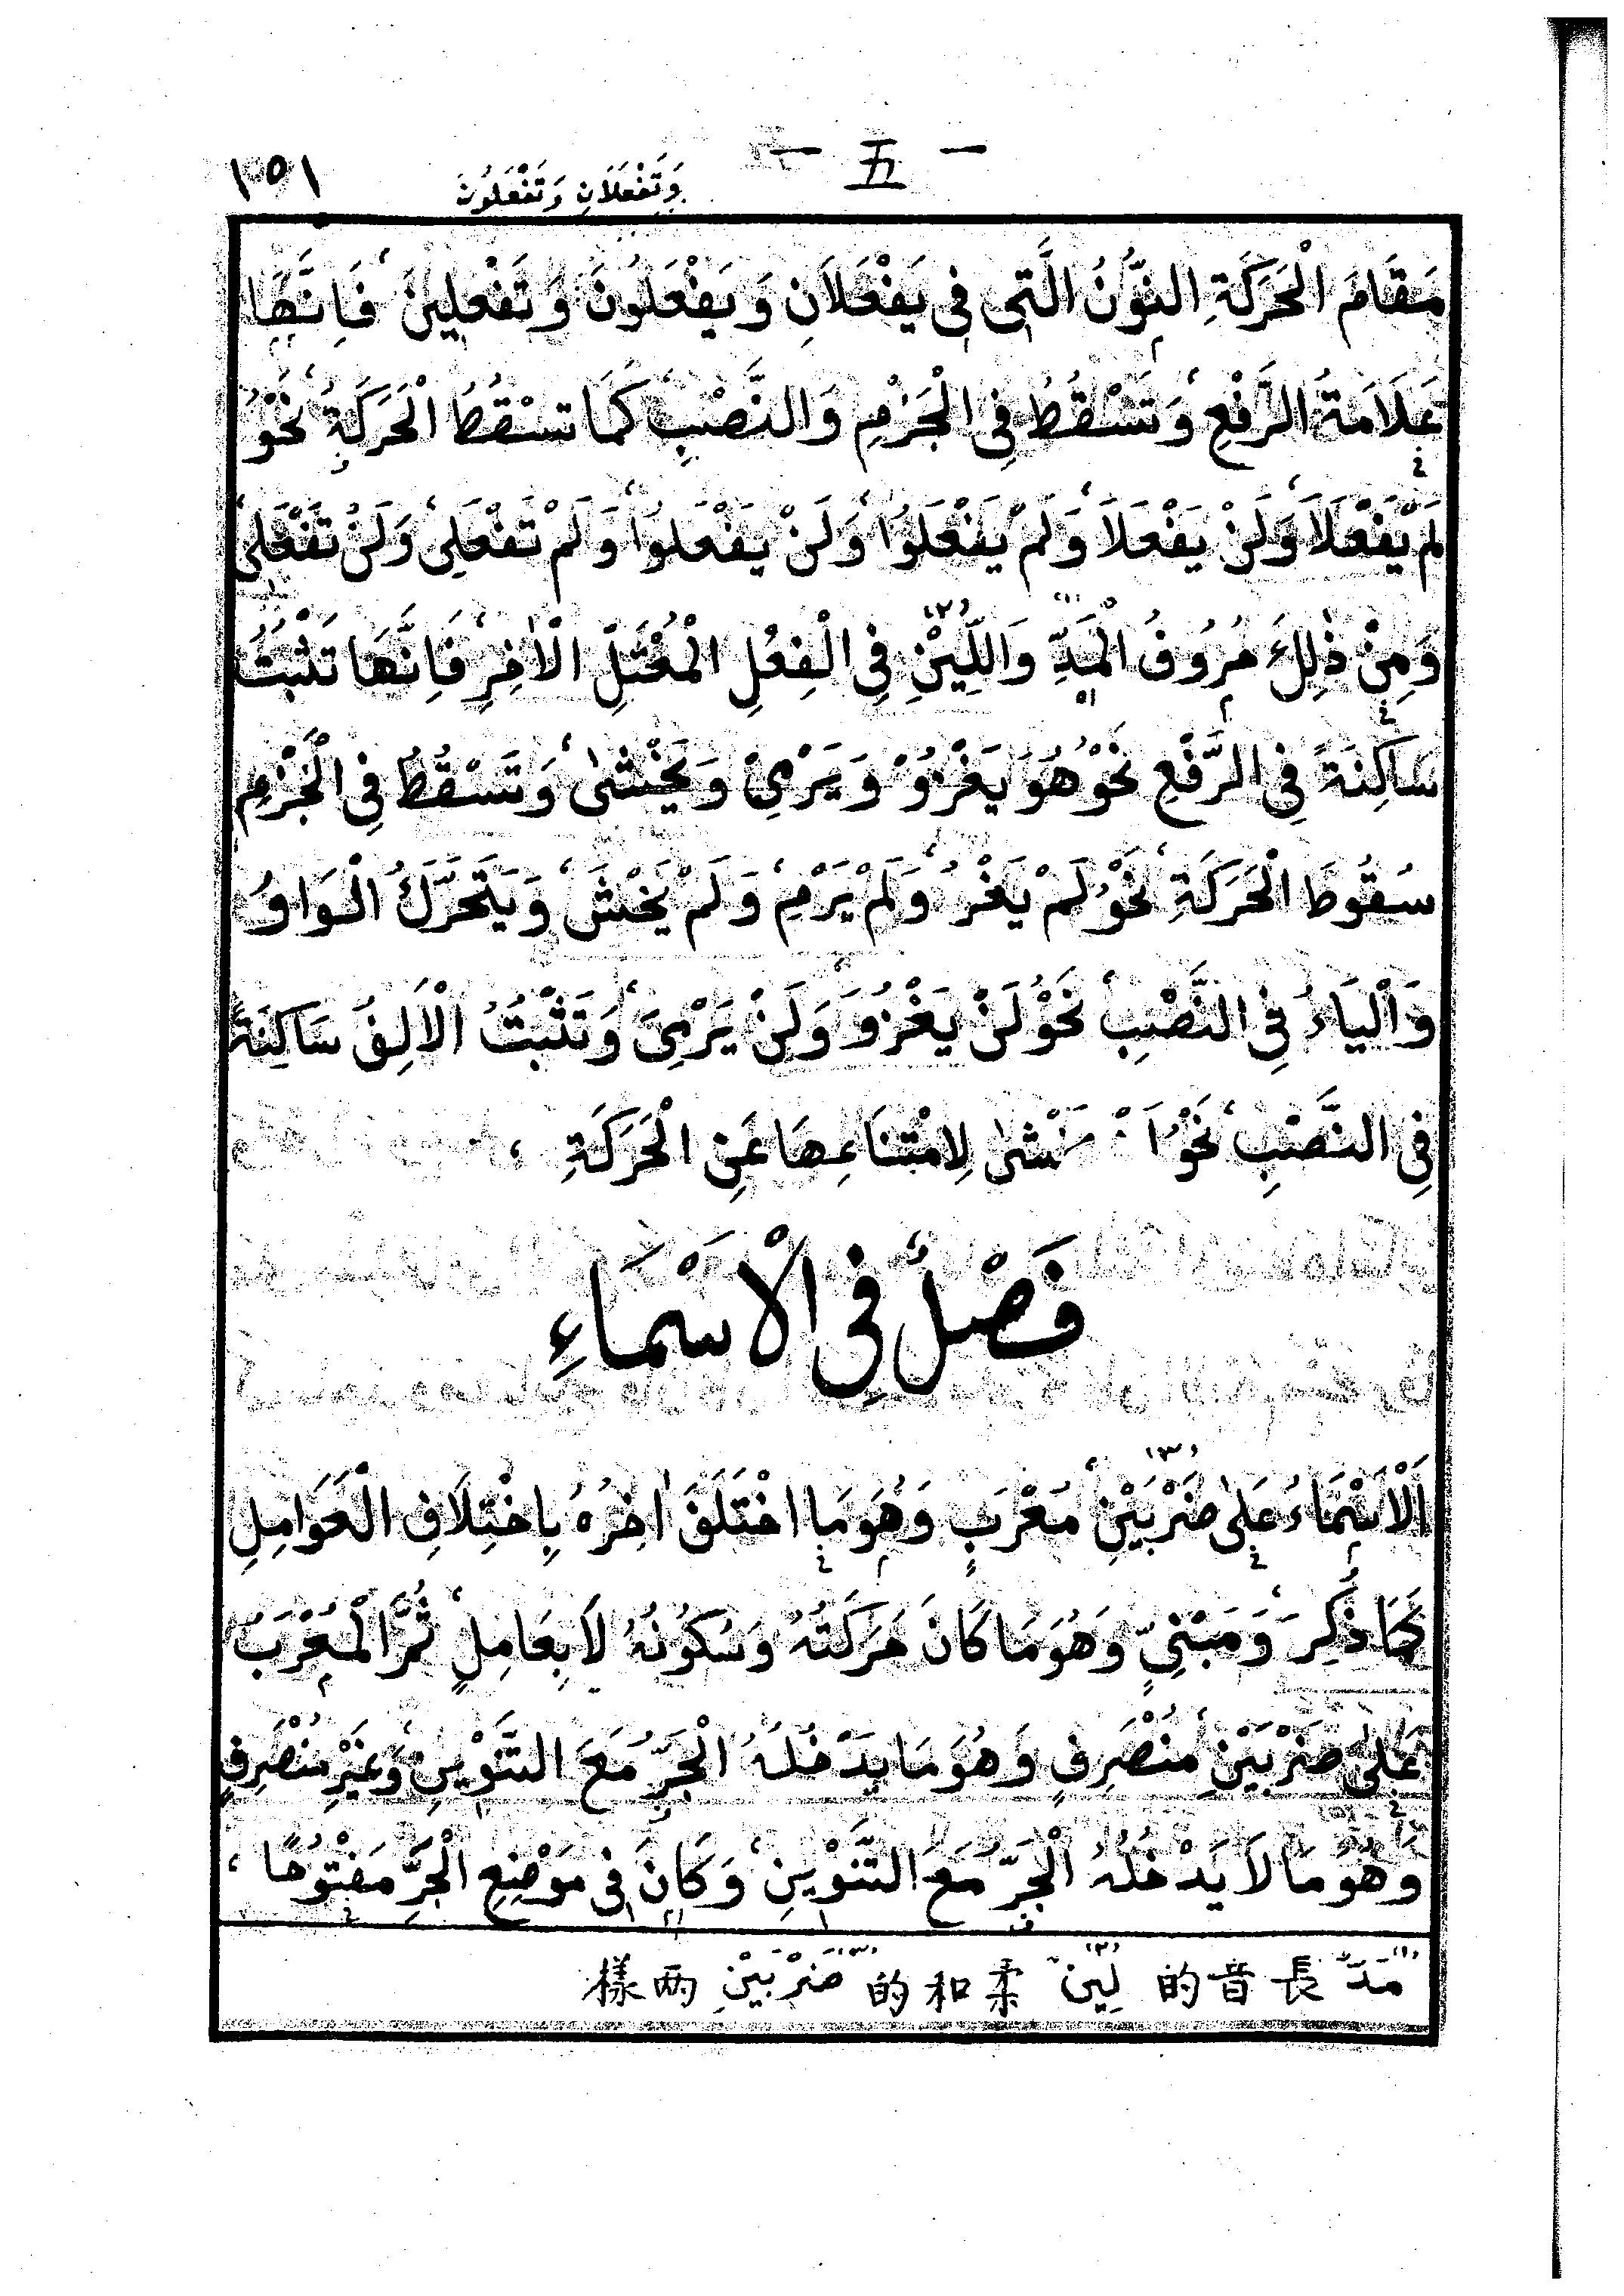 — 五 —
وَتَفْعَلَانِ وَتَفْعَلُونَ
(٥١)
مَقَامَ الْحَرَكَةِ النُّوْنُ الَّتِى فِى يَفْعَلَانِ وَيَفْعَلُوْنَ وَتَفْعَلِيْنَ، فَاِنَّهَا
عَلَامَةُ الرَّفْعِ، وَتَسْقُطُ فِى الْجَزْمِ وَالنَّصْبِ، كَمَا تَسْقُطُ الْحَرَكَةُ، نَحْوُ
لَمْ يَفْعَلَا، وَلَنْ يَفْعَلَا، وَلَمْ يَفْعَلُوْا، وَلَنْ يَفْعَلُوْا، وَلَمْ تَفْعَلِىْ، وَلَنْ تَفْعَلِىْ
وَمِنْ ذٰلِكَ حُرُوْفُ الْمَدِّ (١) وَاللِّيْنِ (٢) فِى الْفِعْلِ الْمُعْتَلِّ الْاٰخِرِ، فَاِنَّهَا تَثْبُتُ
سَاكِنَةً فِى الرَّفْعِ نَحْوُ هُوَ يَغْزُوْ وَيَرْمِىْ وَيَخْشٰى، وَتَسْقُطُ فِى الْجَزْمِ
سُقُوْطَ الْحَرَكَةِ، نَحْوُ لَمْ يَغْزُ، وَلَمْ يَرْمِ، وَلَمْ يَخْشَ، وَيَتَحَرَّكُ الْوَاوُ
وَالْيَاءُ فِى النَّصْبِ، نَحْوُ لَنْ يَغْزُوَ، وَلَنْ يَرْمِىَ، وَتَثْبُتُ الْاَلِفُ سَاكِنَةً
فِى النَّصْبِ، نَحْوُ لِامْتِنَاعِهَا عَنِ الْحَرَكَةِ،
فَصْلٌ فِى الْاَسْمَاءِ
اَلْاَسْمَاءُ عَلٰى ضَرْبَيْنِ (٣)، مُعْرَبٍ وَهُوَ مَا اخْتَلَفَ اٰخِرُهُ بِاخْتِلَافِ الْعَوَامِلِ
كَمَا ذُكِرَ، وَمَبْنِىٍّ وَهُوَ مَا كَانَ حَرَكَتُهُ وَسُكُوْنُهُ لَا بِعَامِلٍ، ثُمَّ الْمُعْرَبُ
عَلٰى ضَرْبَيْنِ، مُنْصَرِفٍ وَهُوَ مَا يَدْخُلُهُ الْجَرُّ مَعَ التَّنْوِيْنِ، وَغَيْرِ مُنْصَرِفٍ
وَهُوَ مَا لَا يَدْخُلُهُ الْجَرُّ مَعَ التَّنْوِيْنِ، وَكَانَ فِى مَوْضِعِ الْجَرِّ مَفْتُوْحًا،
(١) مَدّ 長音的 (٢) لِيْن 柔和的 (٣) ضَرْبَيْنِ 兩樣